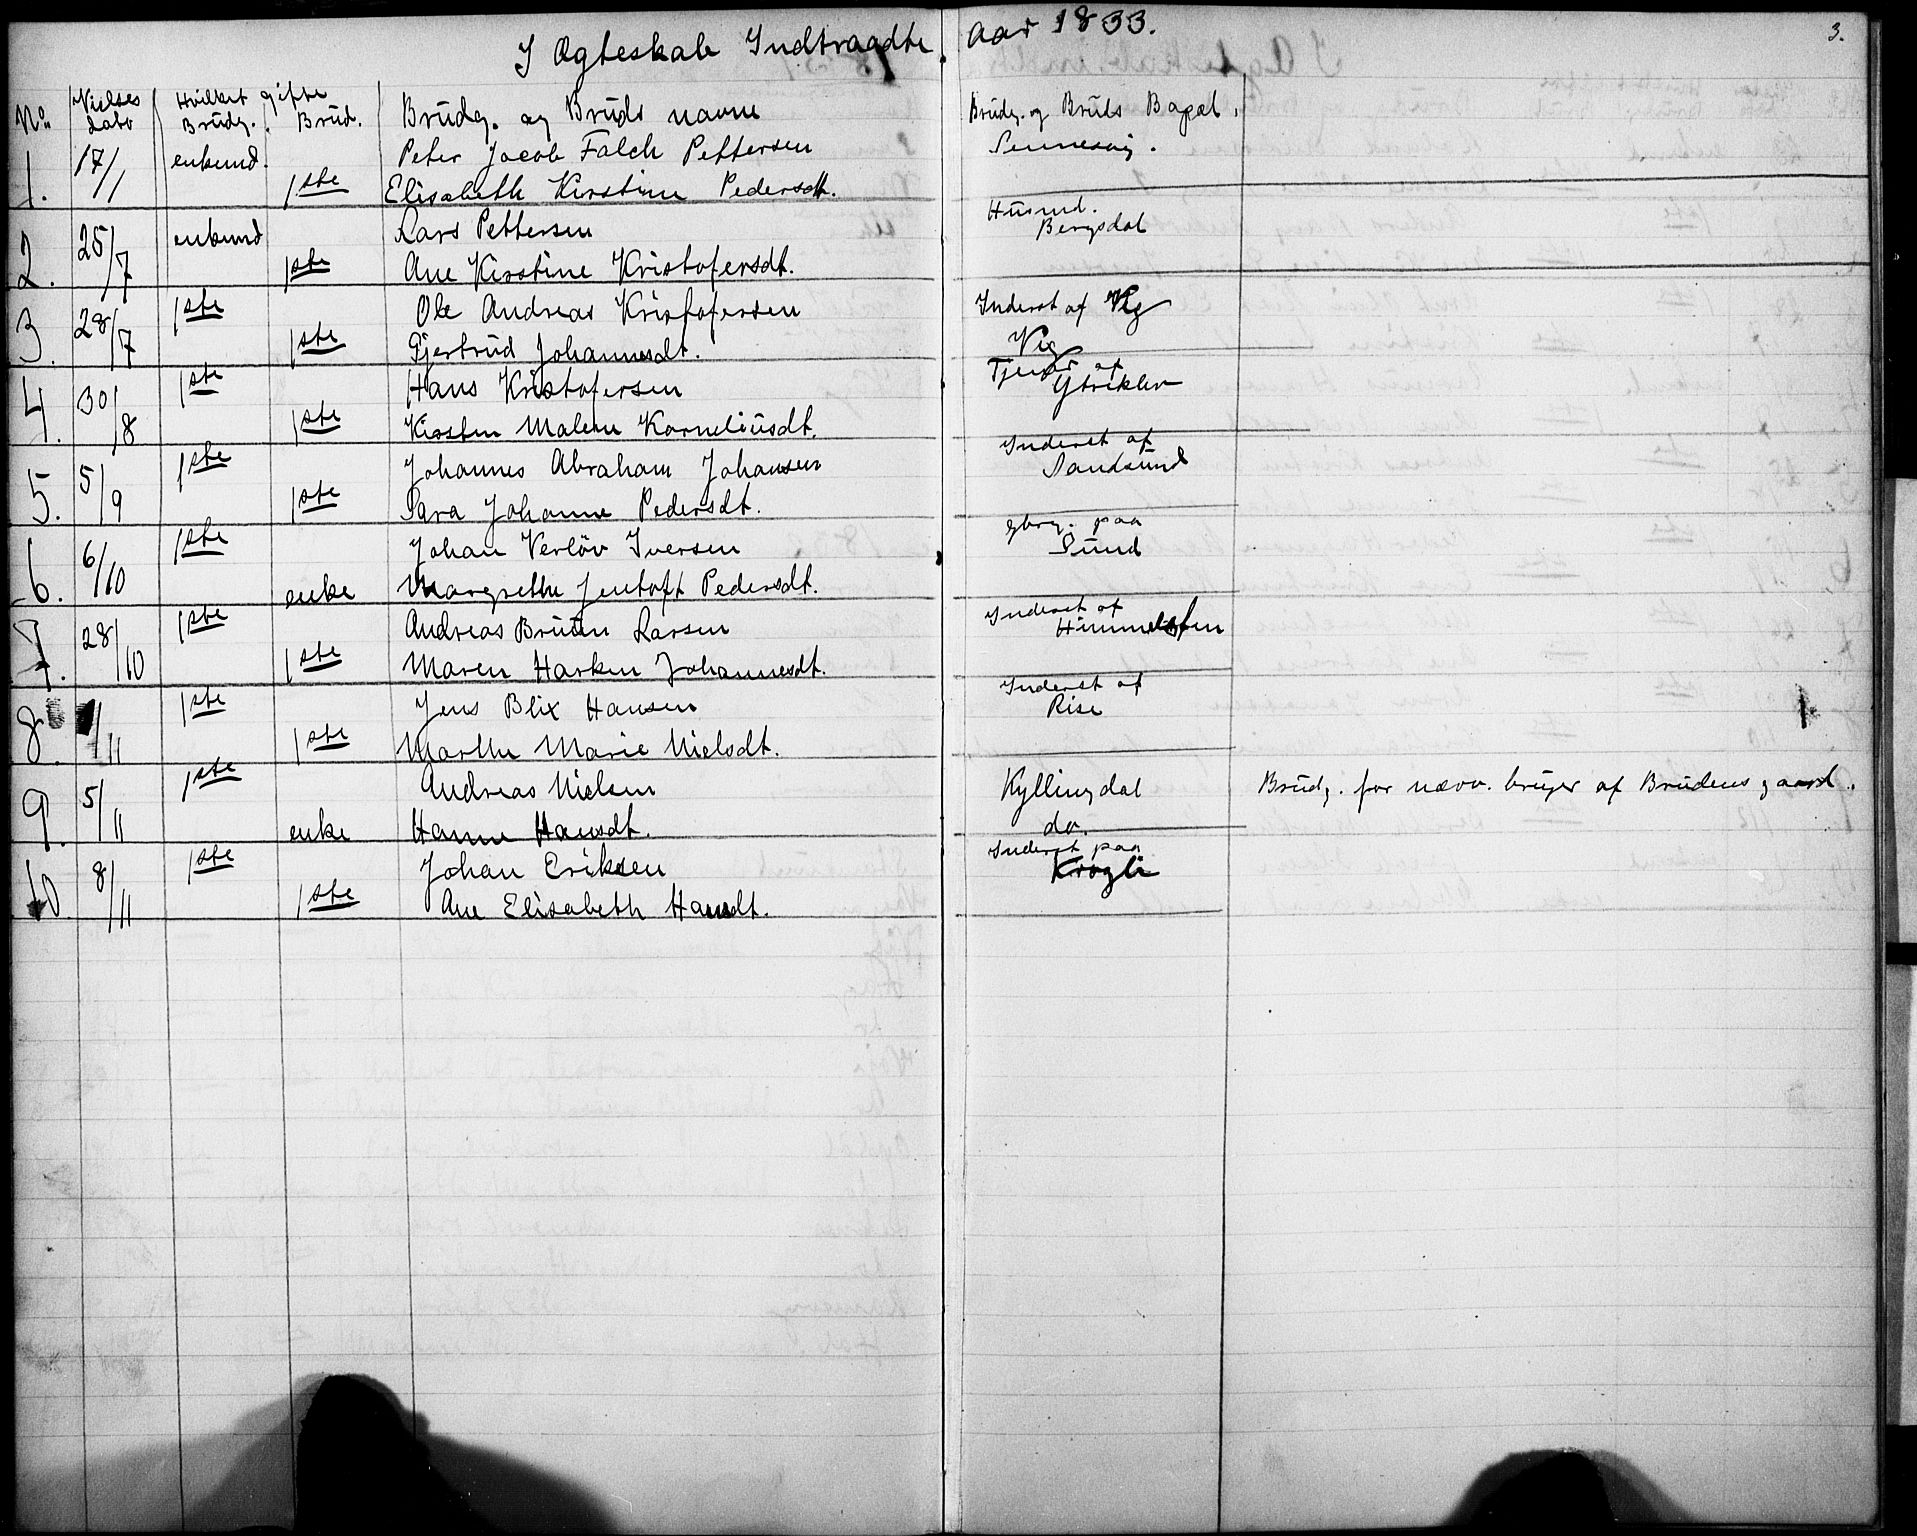 I Ægteskab Indtraadte aar 1833.
3.
No. Vielses dato Hvilket gifte Brudg. Brud. Brudg. og Bruds navne Brudg. og Bruds Bopæl.
1. 17/1 enkemd. Peter Jacob Falch Pettersen
1ste Elisabeth Kirstine Pedersdt.
2. 25/7 enkemd Lars Pettersen Husmd. Bergsdal
1ste Ane Kirstine Kristofersdt.
3. 28/7 1ste Ole Andreas Kristofersen Inderst af Vig
1ste Gjertrud Johannesdt. Vig
4. 30/8 1ste Hans Kristofersen Tjener af Ytreklev
1ste Kirsten Malene Korneliusdt.
5. 5/9 1ste Johannes Abraham Johansen Inderst af Sandsund
1ste Sara Johanne Pedersdt.
6. 6/10 1ste Johan Verløv Iversen gbrg. paa Sund
enke Margrethe Jentoft Pedersdt.
7. 28/10 1ste Andreas Bruun Larsen Inderst af
1ste Maren Harken Johannesdt.
8. /11 1ste Jens Blix Hansen Inderst af Rise
1ste Marthe Marie Nielsdt.
9. 5/11 1ste Andreas Nielsen Kyllingdal Brudg. før nævv. bruger af Brudens gaard.
enke Hanne Hansdt. do.
10 8/11 1ste Johan Eriksen Inderst paa Krogli
1ste Ane Elisabeth Hansdt.